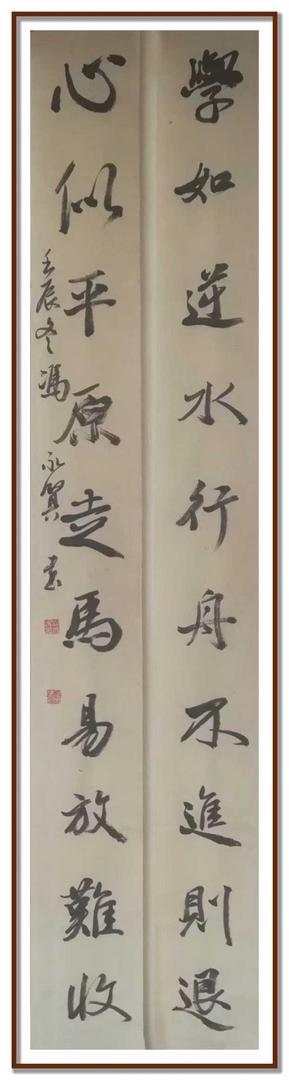 學如逆水行舟不進則退
心似平原走馬易放難收
壬辰冬馮永賢書